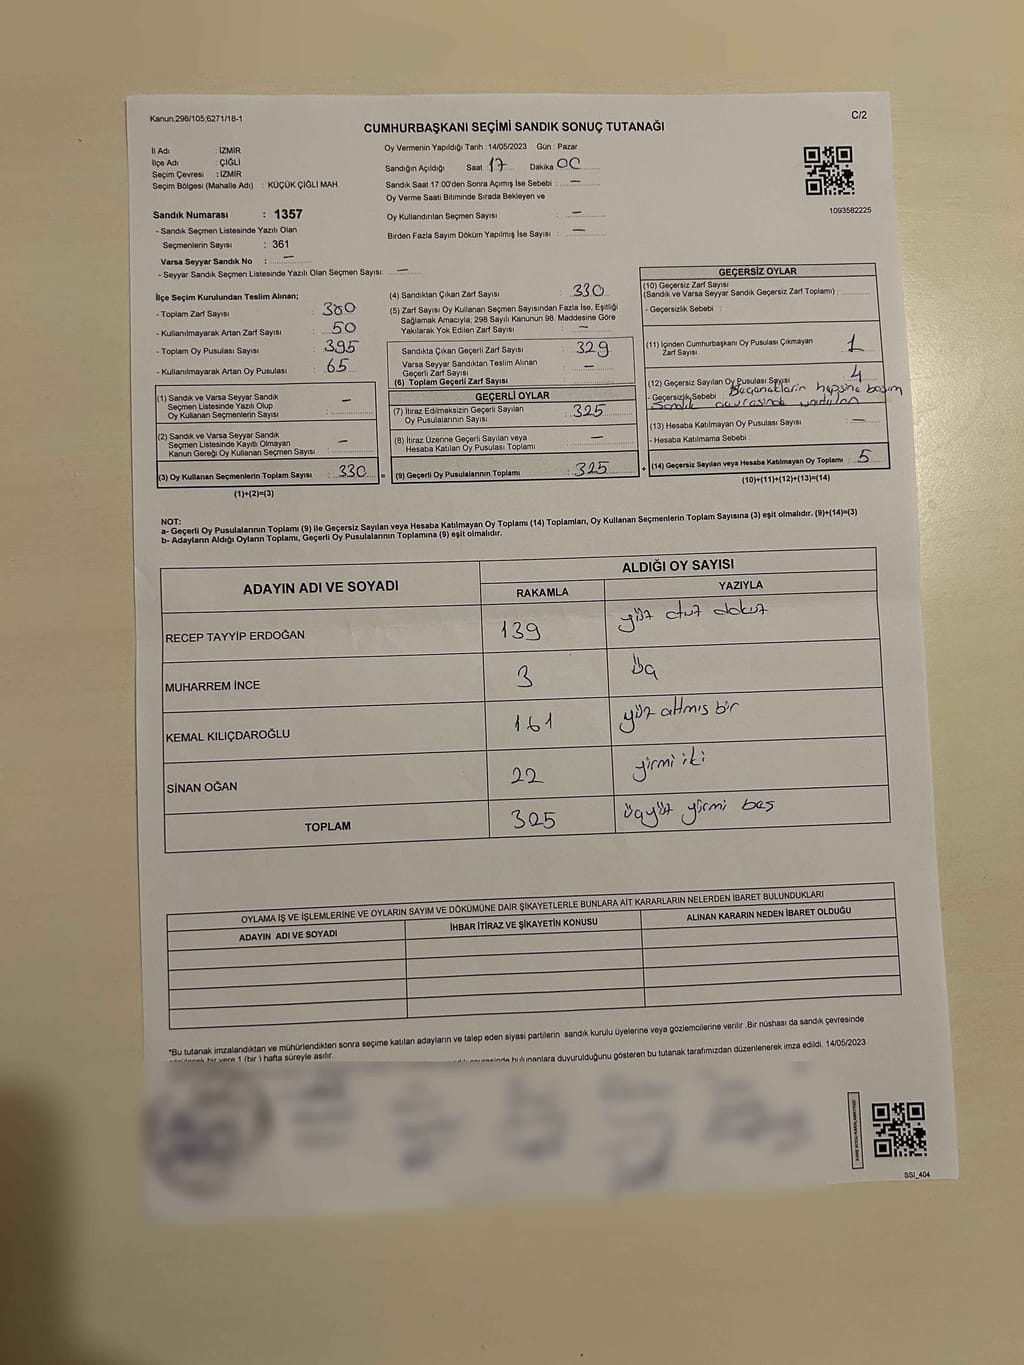 Kanun;298/105,6271/18-1
C/2
CUMHURBAŞKANI SEÇİMİ SANDIK SONUÇ TUTANAĞI
İl Adı : İZMİR
İlçe Adı : ÇİĞLİ
Seçim Çevresi : İZMİR
Seçim Bölgesi (Mahalle Adı) : KÜÇÜK ÇİĞLİ MAH.
Sandık Numarası : 1357
- Sandık Seçmen Listesinde Yazılı Olan
Seçmenlerin Sayısı : 361
Varsa Seyyar Sandık No : —
- Seyyar Sandık Seçmen Listesinde Yazılı Olan Seçmen Sayısı: —
Oy Vermenin Yapıldığı Tarih :14/05/2023 Gün : Pazar
Sandığın Açıldığı Saat 17 Dakika 00
Sandık Saat 17.00'den Sonra Açımış İse Sebebi : —
Oy Verme Saati Bitiminde Sırada Bekleyen ve
Oy Kullandırılan Seçmen Sayısı : —
Birden Fazla Sayım Döküm Yapılmış İse Sayısı : —
1093582225
İlçe Seçim Kurulundan Teslim Alınan;
- Toplam Zarf Sayısı : 380
- Kullanılmayarak Artan Zarf Sayısı : 50
- Toplam Oy Pusulası Sayısı : 395
- Kullanılmayarak Artan Oy Pusulası : 65
(1) Sandık ve Varsa Seyyar Sandık
Seçmen Listesinde Yazılı Olup
Oy Kullanan Seçmenlerin Sayısı : —
(2) Sandık ve Varsa Seyyar Sandık
Seçmen Listesinde Kayıtlı Olmayan
Kanun Gereği Oy Kullanan Seçmen Sayısı : —
(3) Oy Kullanan Seçmenlerin Toplam Sayısı : 330 =
(1)+(2)=(3)
(4) Sandıktan Çıkan Zarf Sayısı : 330
(5) Zarf Sayısı Oy Kullanan Seçmen Sayısından Fazla İse, Eşitliği
Sağlamak Amacıyla, 298 Sayılı Kanunun 98. Maddesine Göre
Yakılarak Yok Edilen Zarf Sayısı : —
Sandıkta Çıkan Geçerli Zarf Sayısı : 329
Varsa Seyyar Sandıktan Teslim Alınan
Geçerli Zarf Sayısı : —
(6) Toplam Geçerli Zarf Sayısı :
GEÇERLİ OYLAR
(7) İtiraz Edilmeksizin Geçerli Sayılan
Oy Pusulasının Sayısı : 325
(8) İtiraz Üzerine Geçerli Sayılan veya
Hesaba Katılan Oy Pusulası Toplamı : —
(9) Geçerli Oy Pusulalarının Toplamı : 325 +
GEÇERSİZ OYLAR
(10) Geçersiz Zarf Sayısı
(Sandık ve Varsa Seyyar Sandık Geçersiz Zarf Toplamı) :
- Geçersizlik Sebebi :
(11) İçinden Cumhurbaşkanı Oy Pusulası Çıkmayan
Zarf Sayısı : 1
(12) Geçersiz Sayılan Oy Pusulası Sayısı : 4
- Geçersizlik Sebebi : hepsine basım
Sandık
(13) Hesaba Katılmayan Oy Pusulası Sayısı : —
- Hesaba Katılmama Sebebi :
(14) Geçersiz Sayılan veya Hesaba Katılmayan Oy Toplamı : 5
(10)+(11)+(12)+(13)=(14)
NOT:
a- Geçerli Oy Pusulalarının Toplamı (9) ile Geçersiz Sayılan veya Hesaba Katılmayan Oy Toplamı (14) Toplamları, Oy Kullanan Seçmenlerin Toplam Sayısına (3) eşit olmalıdır. (9)+(14)=(3)
b- Adayların Aldığı Oyların Toplamı, Geçerli Oy Pusulalarının Toplamına (9) eşit olmalıdır.
ADAYIN ADI VE SOYADI
ALDIĞI OY SAYISI
RAKAMLA YAZIYLA
RECEP TAYYİP ERDOĞAN 139 yüz otuz dokuz
MUHARREM İNCE 3 üç
KEMAL KILIÇDAROĞLU 161 yüz altmış bir
SİNAN OĞAN 22 yirmi iki
TOPLAM 325 üçyüz yirmi beş
OYLAMA İŞ VE İŞLEMLERİNE VE OYLARIN SAYIM VE DÖKÜMÜNE DAİR ŞİKAYETLERLE BUNLARA AİT KARARLARIN NELERDEN İBARET BULUNDUKLARI
ADAYIN ADI VE SOYADI İHBAR İTİRAZ VE ŞİKAYETİN KONUSU ALINAN KARARIN NEDEN İBARET OLDUĞU
*Bu tutanak imzalandıktan ve mühürlendikten sonra seçime katılan adayların ve talep eden siyasi partilerin sandık kurulu üyelerine veya gözlemcilerine verilir .Bir nüshası da sandık çevresinde
görülecek bir yere 1 (bir ) hafta süreyle asılır.
bulunanlara duyurulduğunu gösteren bu tutanak tarafımızdan düzenlenerek imza edildi. 14/05/2023
SSI_404